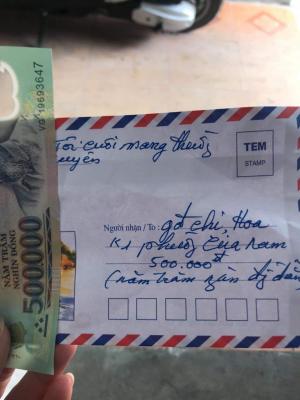 VG 19693647
NĂM TRĂM
NGHÌN ĐỒNG
500000
Tôi cuối mang thuốc
TEM
STAMP
Người nhận / To : gđ chị, Hoa
K1 phường Cửa nam
500.000đ
(năm trăm ngàn